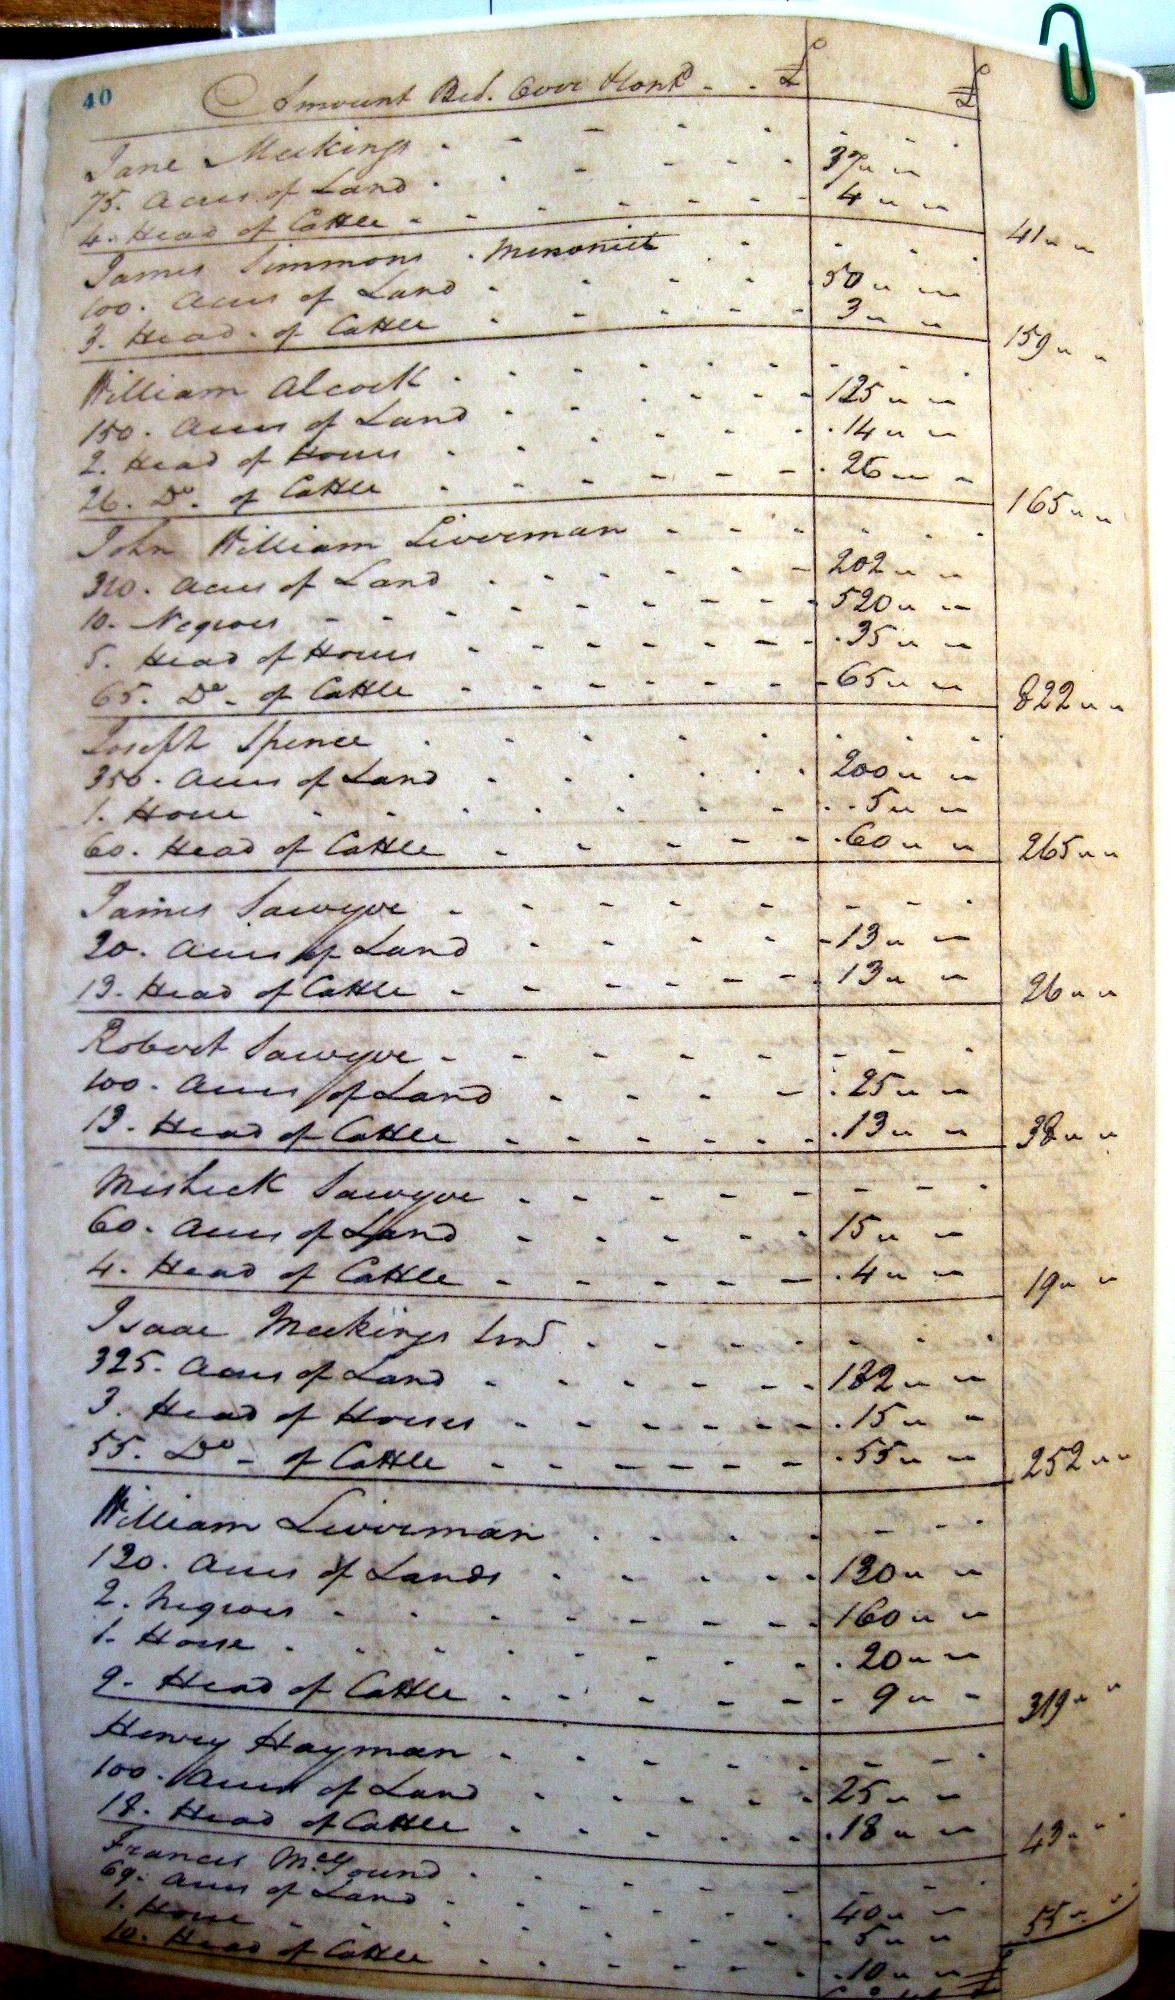 40
Amount Bro. Over £ £
Jane Meekings
75. Acres of Land 37 " "
4. Head of Cattle 4 " " 41 " "
James Simmons . Menonist
100. Acres of Land 50 " "
3. Head of Cattle 3 " " 159 " "
William Alcock
150. Acres of Land 125 " "
2. Head of Horses 14 " "
26. Do. of Cattle 26 " " 165 " "
John William Liverman
310. Acres of Land 202 " "
10. Negroes 520 " "
5. Head of Horses 35 " "
65. Do. of Cattle 65 " " 822 " "
Joseph Spence
350. Acres of Land 200 " "
1. Horse 5 " "
60. Head of Cattle 60 " " 265 " "
James Sawyer
30. Acres of Land 13 " "
13. Head of Cattle 13 " " 26 " "
Robert Sawyer
100. Acres of Land 25 " "
13. Head of Cattle 13 " " 38 " "
Misheck Sawyer
60. Acres of Land 15 " "
4. Head of Cattle 4 " " 19 " "
Isaac Meekings Senr
325. Acres of Land 182 " "
3. Head of Horses 15 " "
55. Do. of Cattle 55 " " 252 " "
William Liverman
130. Acres of Lands 130 " "
2. Negroes 160 " "
1. Horse 20 " "
9. Head of Cattle 9 " " 319 " "
Henry Hayman
100. Acres of Land 25 " "
18. Head of Cattle 18 " " 43 " "
Francis McGound
69. Acres of Land 40 " "
1. Horse 5 " "
10. Head of Cattle 10 " " 55 " "
£